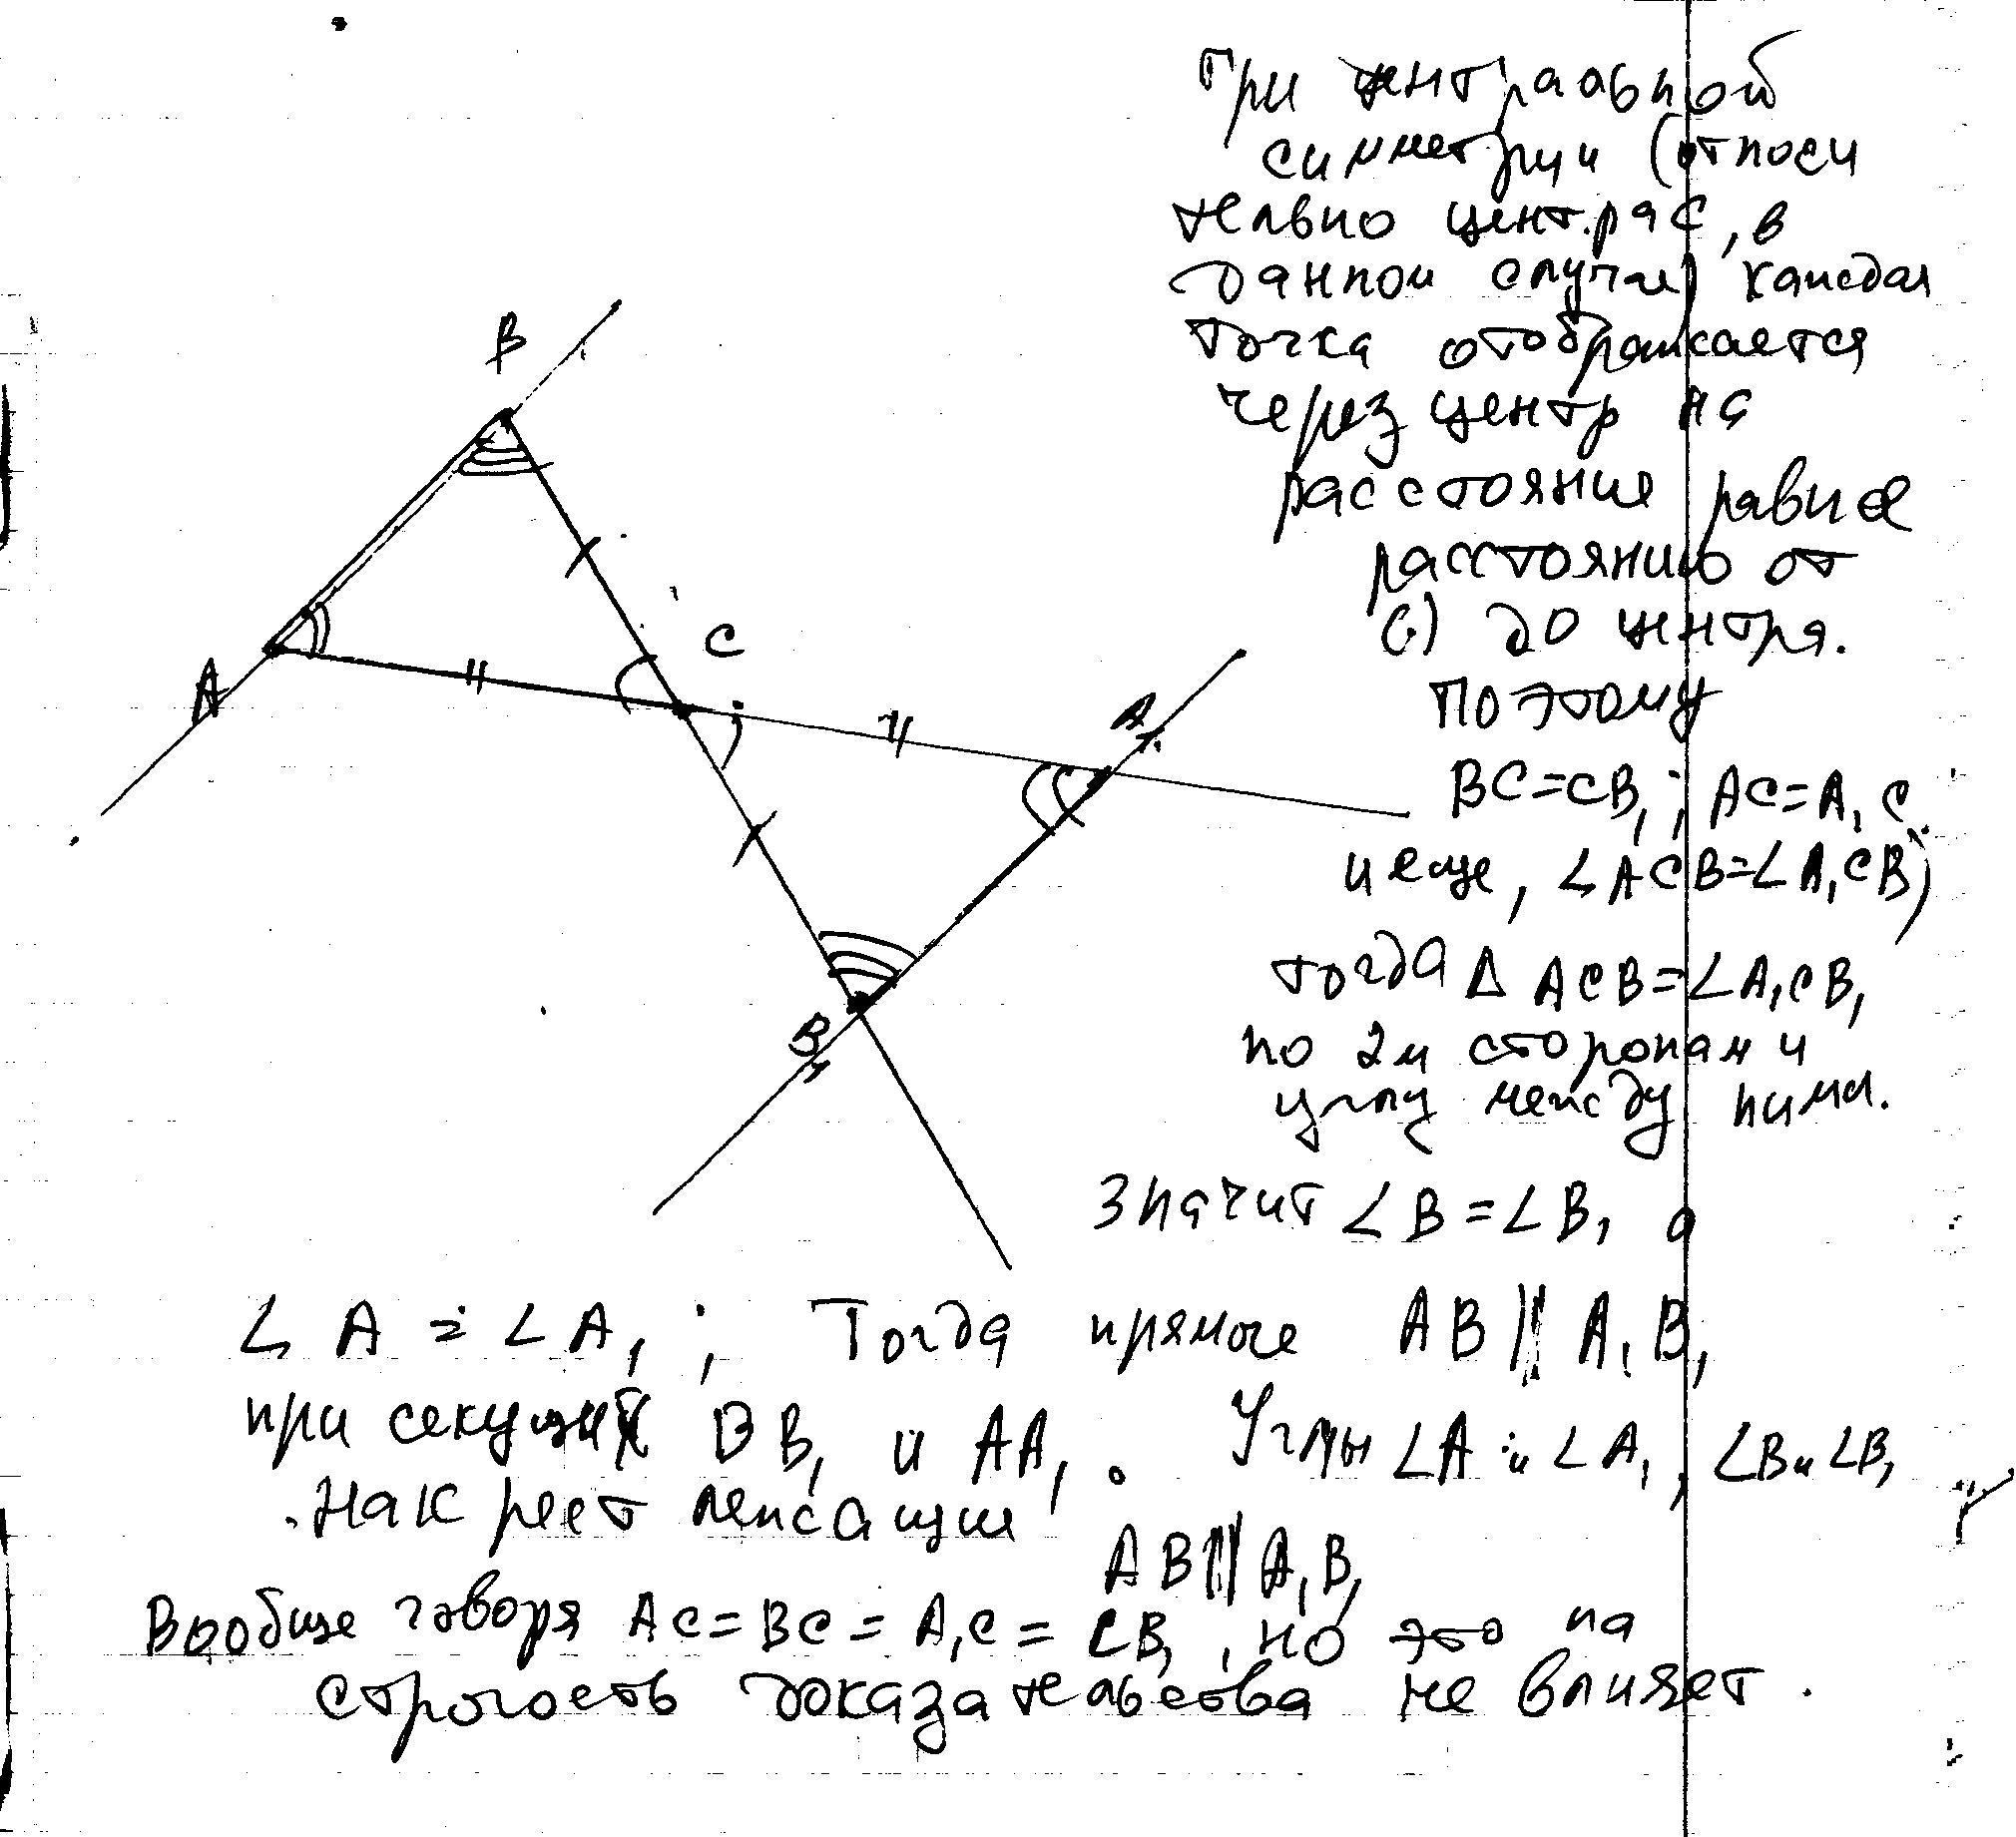 При центральной
симметрии (относи
тельно центра С, в
данном случае) каждая
точка отображается
через центр на
расстояние равное
расстоянию от
до центра.
Поэтому
BC=CB₁; AC=A₁C
и еще, ∠ACB=∠A₁CB₁
тогда Δ ACB=∠A₁CB₁
по 2м сторонам и
углу между ними.
Значит ∠B=∠B₁ а
∠A=∠A₁; Тогда прямые AB || A₁B₁
при секущих BB₁ и AA₁. Углы ∠A и ∠A₁, ∠B и ∠B₁
накрест лежащие
AB || A₁B₁
Вообще говоря AC=BC=A₁C=CB₁, но это на
строгость доказательства не влияет.
B
A
C
A₁
B₁